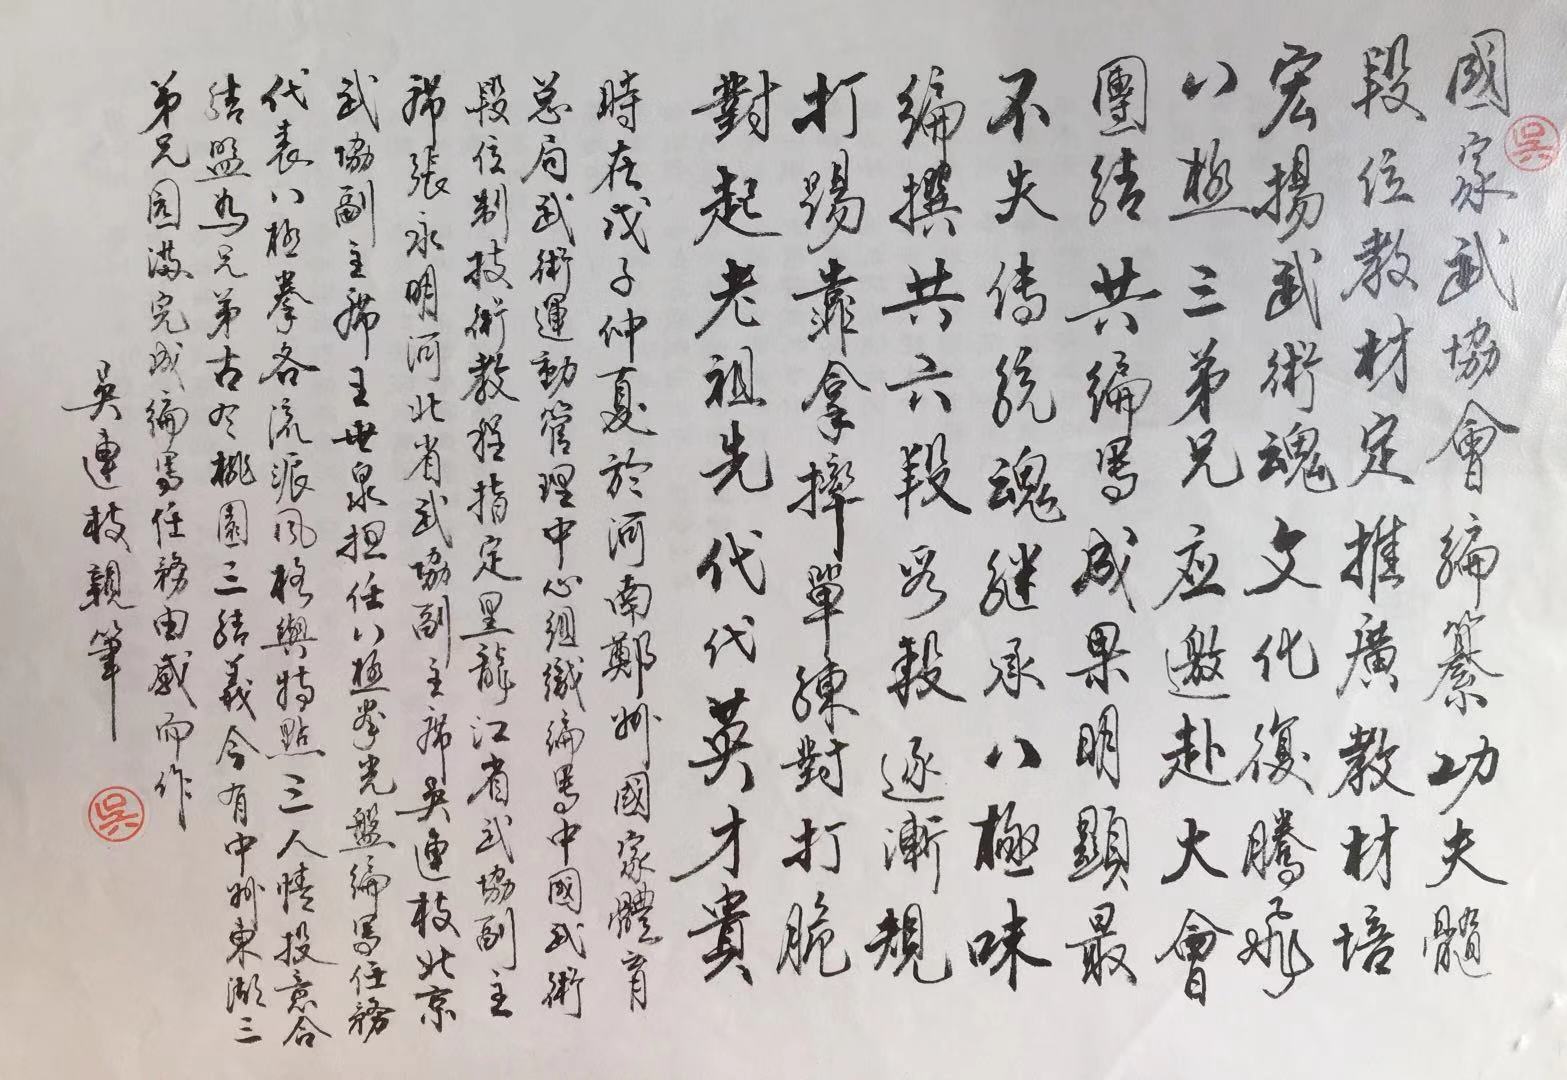 國家武協會編纂功夫髓
段位教材定推廣教材培
宏揚武術魂文化復騰飛
八極三弟兄应邀赴大會
團结共编写成果明顯最
不失傳統魂継承八極味
编撰共六段另毅逐漸規
打踢靠拿摔單練對打脆
對起老祖先代代英才貴
時在戊子仲夏於河南鄭州國家體育
总局武術運動管理中心组織编写中國武術
段位制技術教程指定黑龍江省武協副主
席張永明河北省武協副主席吳連枝北京
武協副主席王世泉担任八極拳光盤编写任務
代表八極拳各流派風格與特點三人情投意合
结盟為兄弟古有桃園三结義今有中州東湖三
弟兄圆满完成编写任務由感而作
吳連枝親筆
吳
吳